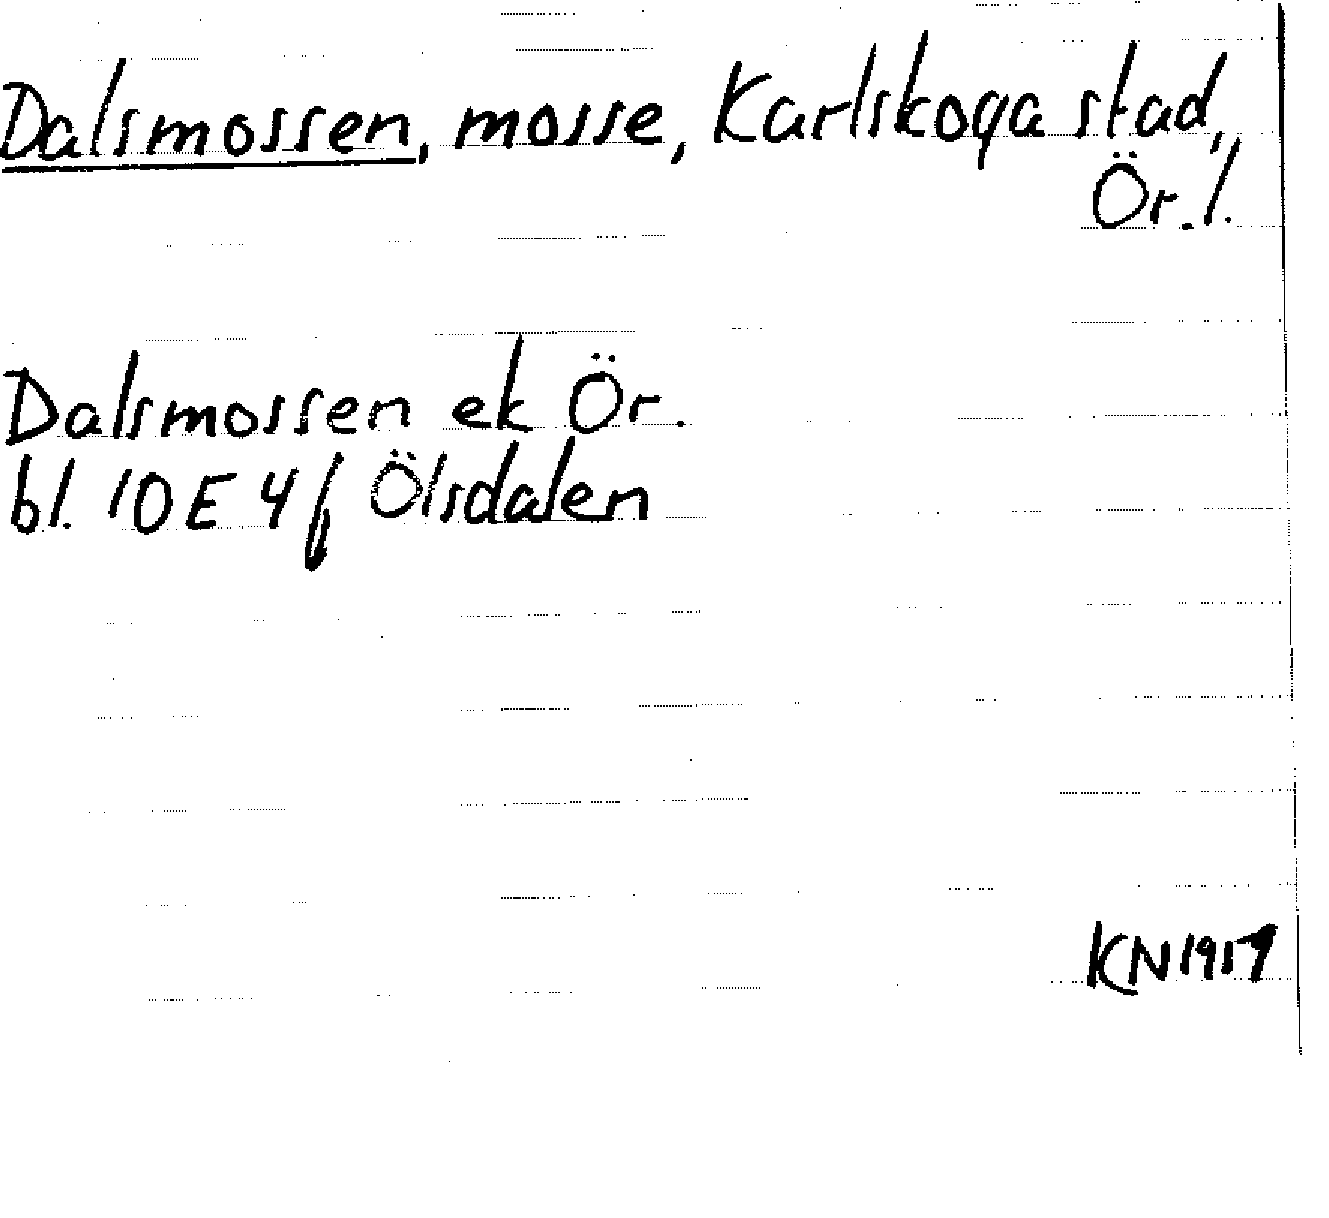 Dalsmossen, mosse, Karlskoga stad,
Ör. l.
Dalsmossen ek Ör.
bl. 10 E 4 f Ölsdalen
KN 1917